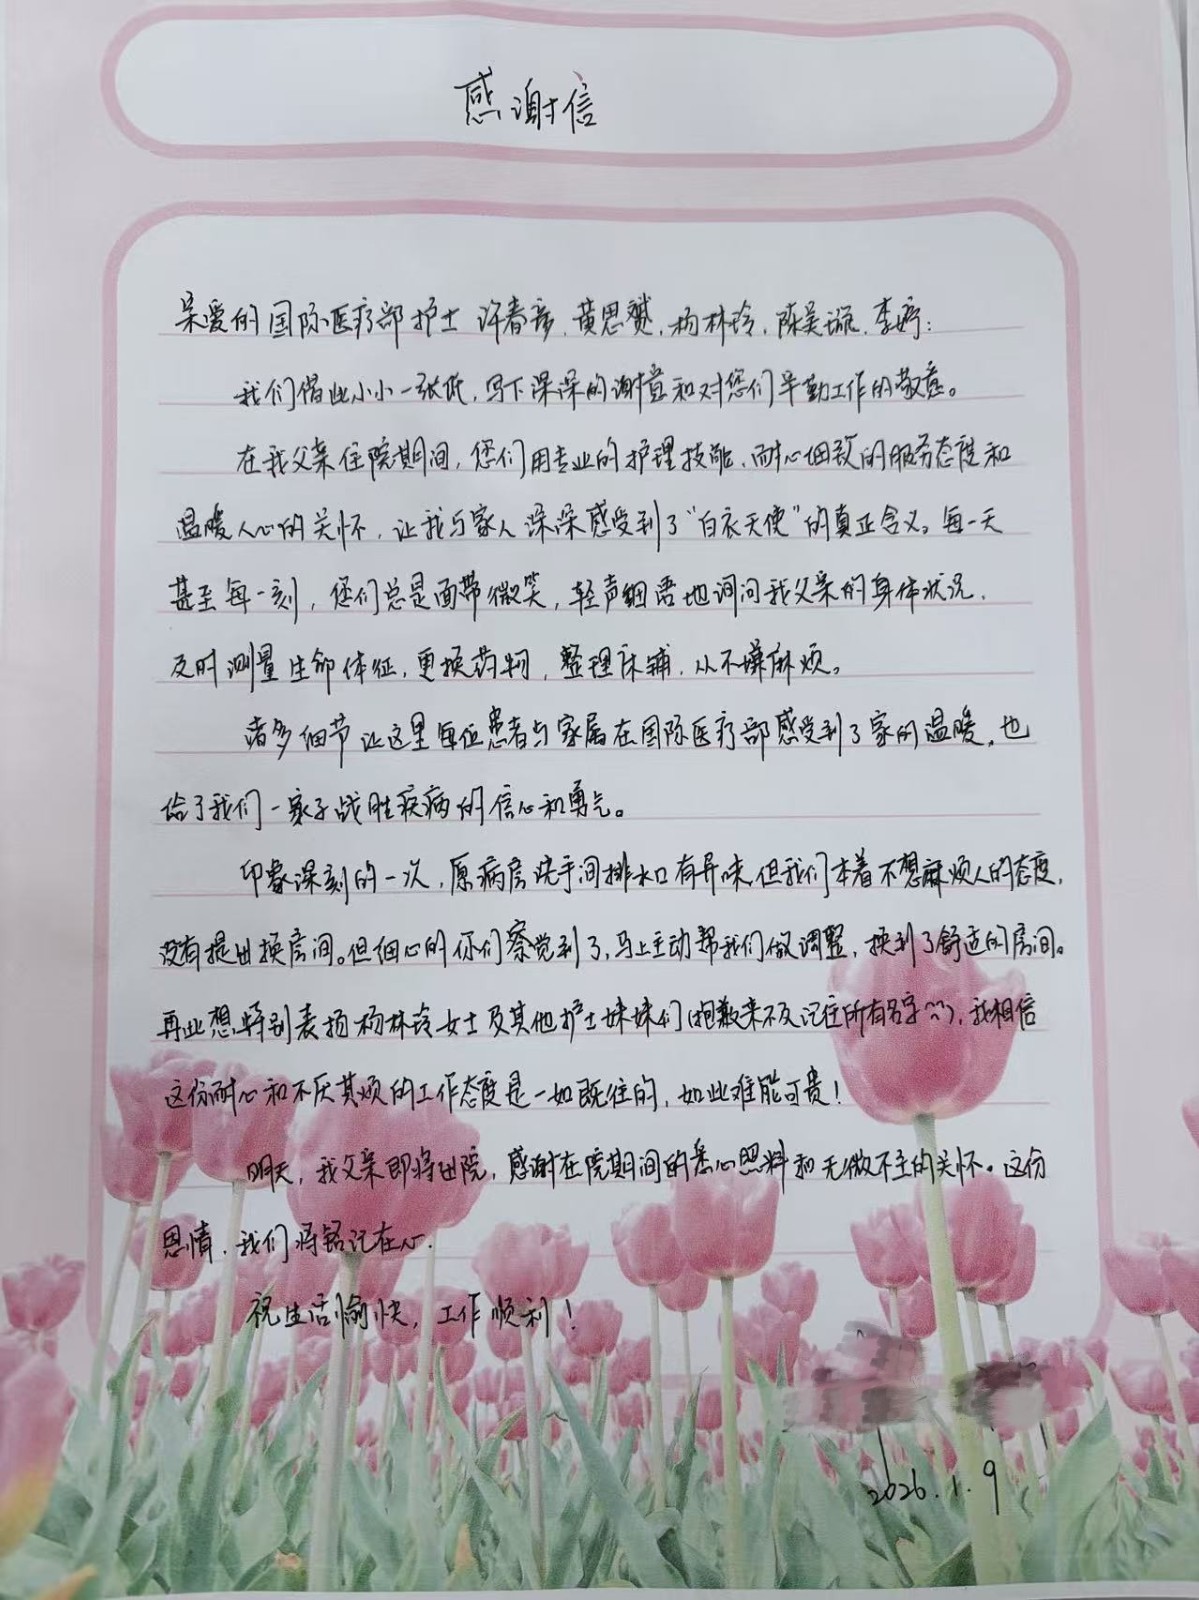 感谢信
亲爱的国际医疗部护士 许春彦、黄思赟、杨林玲、陈美璇、李婷：
我们借此小小一张纸，写下深深的谢意和对您们辛勤工作的敬意。
在我父亲住院期间，您们用专业的护理技能、耐心细致的服务态度和
温暖人心的关怀，让我与家人深深感受到了“白衣天使”的真正含义。每一天
甚至每一刻，您们总是面带微笑，轻声细语地询问我父亲的身体状况，
及时测量生命体征，更换药物，整理床铺，从不嫌麻烦。
诸多细节让这里每位患者与家属在国际医疗部感受到了家的温暖，也
给了我们一家子战胜疾病的信心和勇气。
印象深刻的一次，原病房洗手间排水口有异味，但我们本着不想麻烦人的态度，
没有提出换房间。但细心的你们察觉到了，马上主动帮我们做调整，换到了舒适的房间。
再此想特别表扬杨林玲女士及其他护士妹妹们（抱歉来不及记住所有名字^^），我相信
这份耐心和不厌其烦的工作态度是一如既往的，如此难能可贵！
明天，我父亲即将出院，感谢在院期间的悉心照料和无微不至的关怀。这份
恩情，我们将铭记在心。
祝生活愉快，工作顺利！
2026.1.9